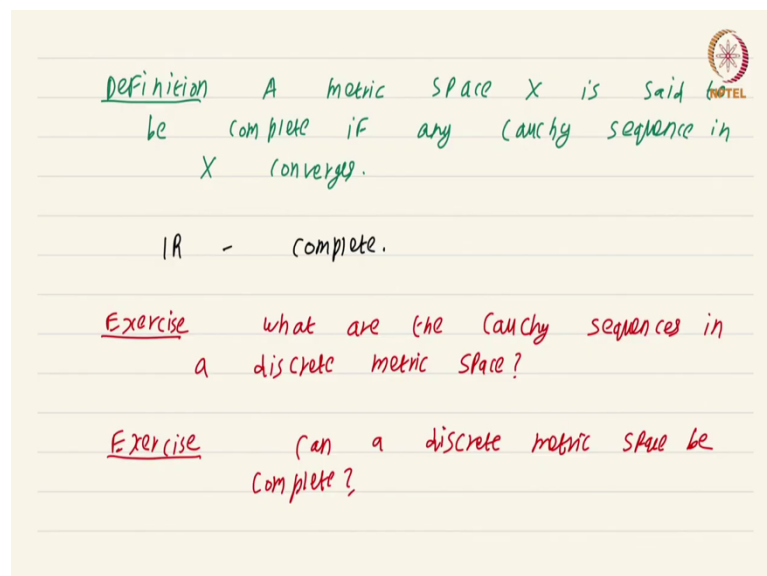 Definition A metric space X is said to
be complete if any Cauchy sequence in
X converges.
IR - complete.
Exercise What are the Cauchy sequences in
a discrete metric space?
Exercise Can a discrete metric space be
complete?
NPTEL